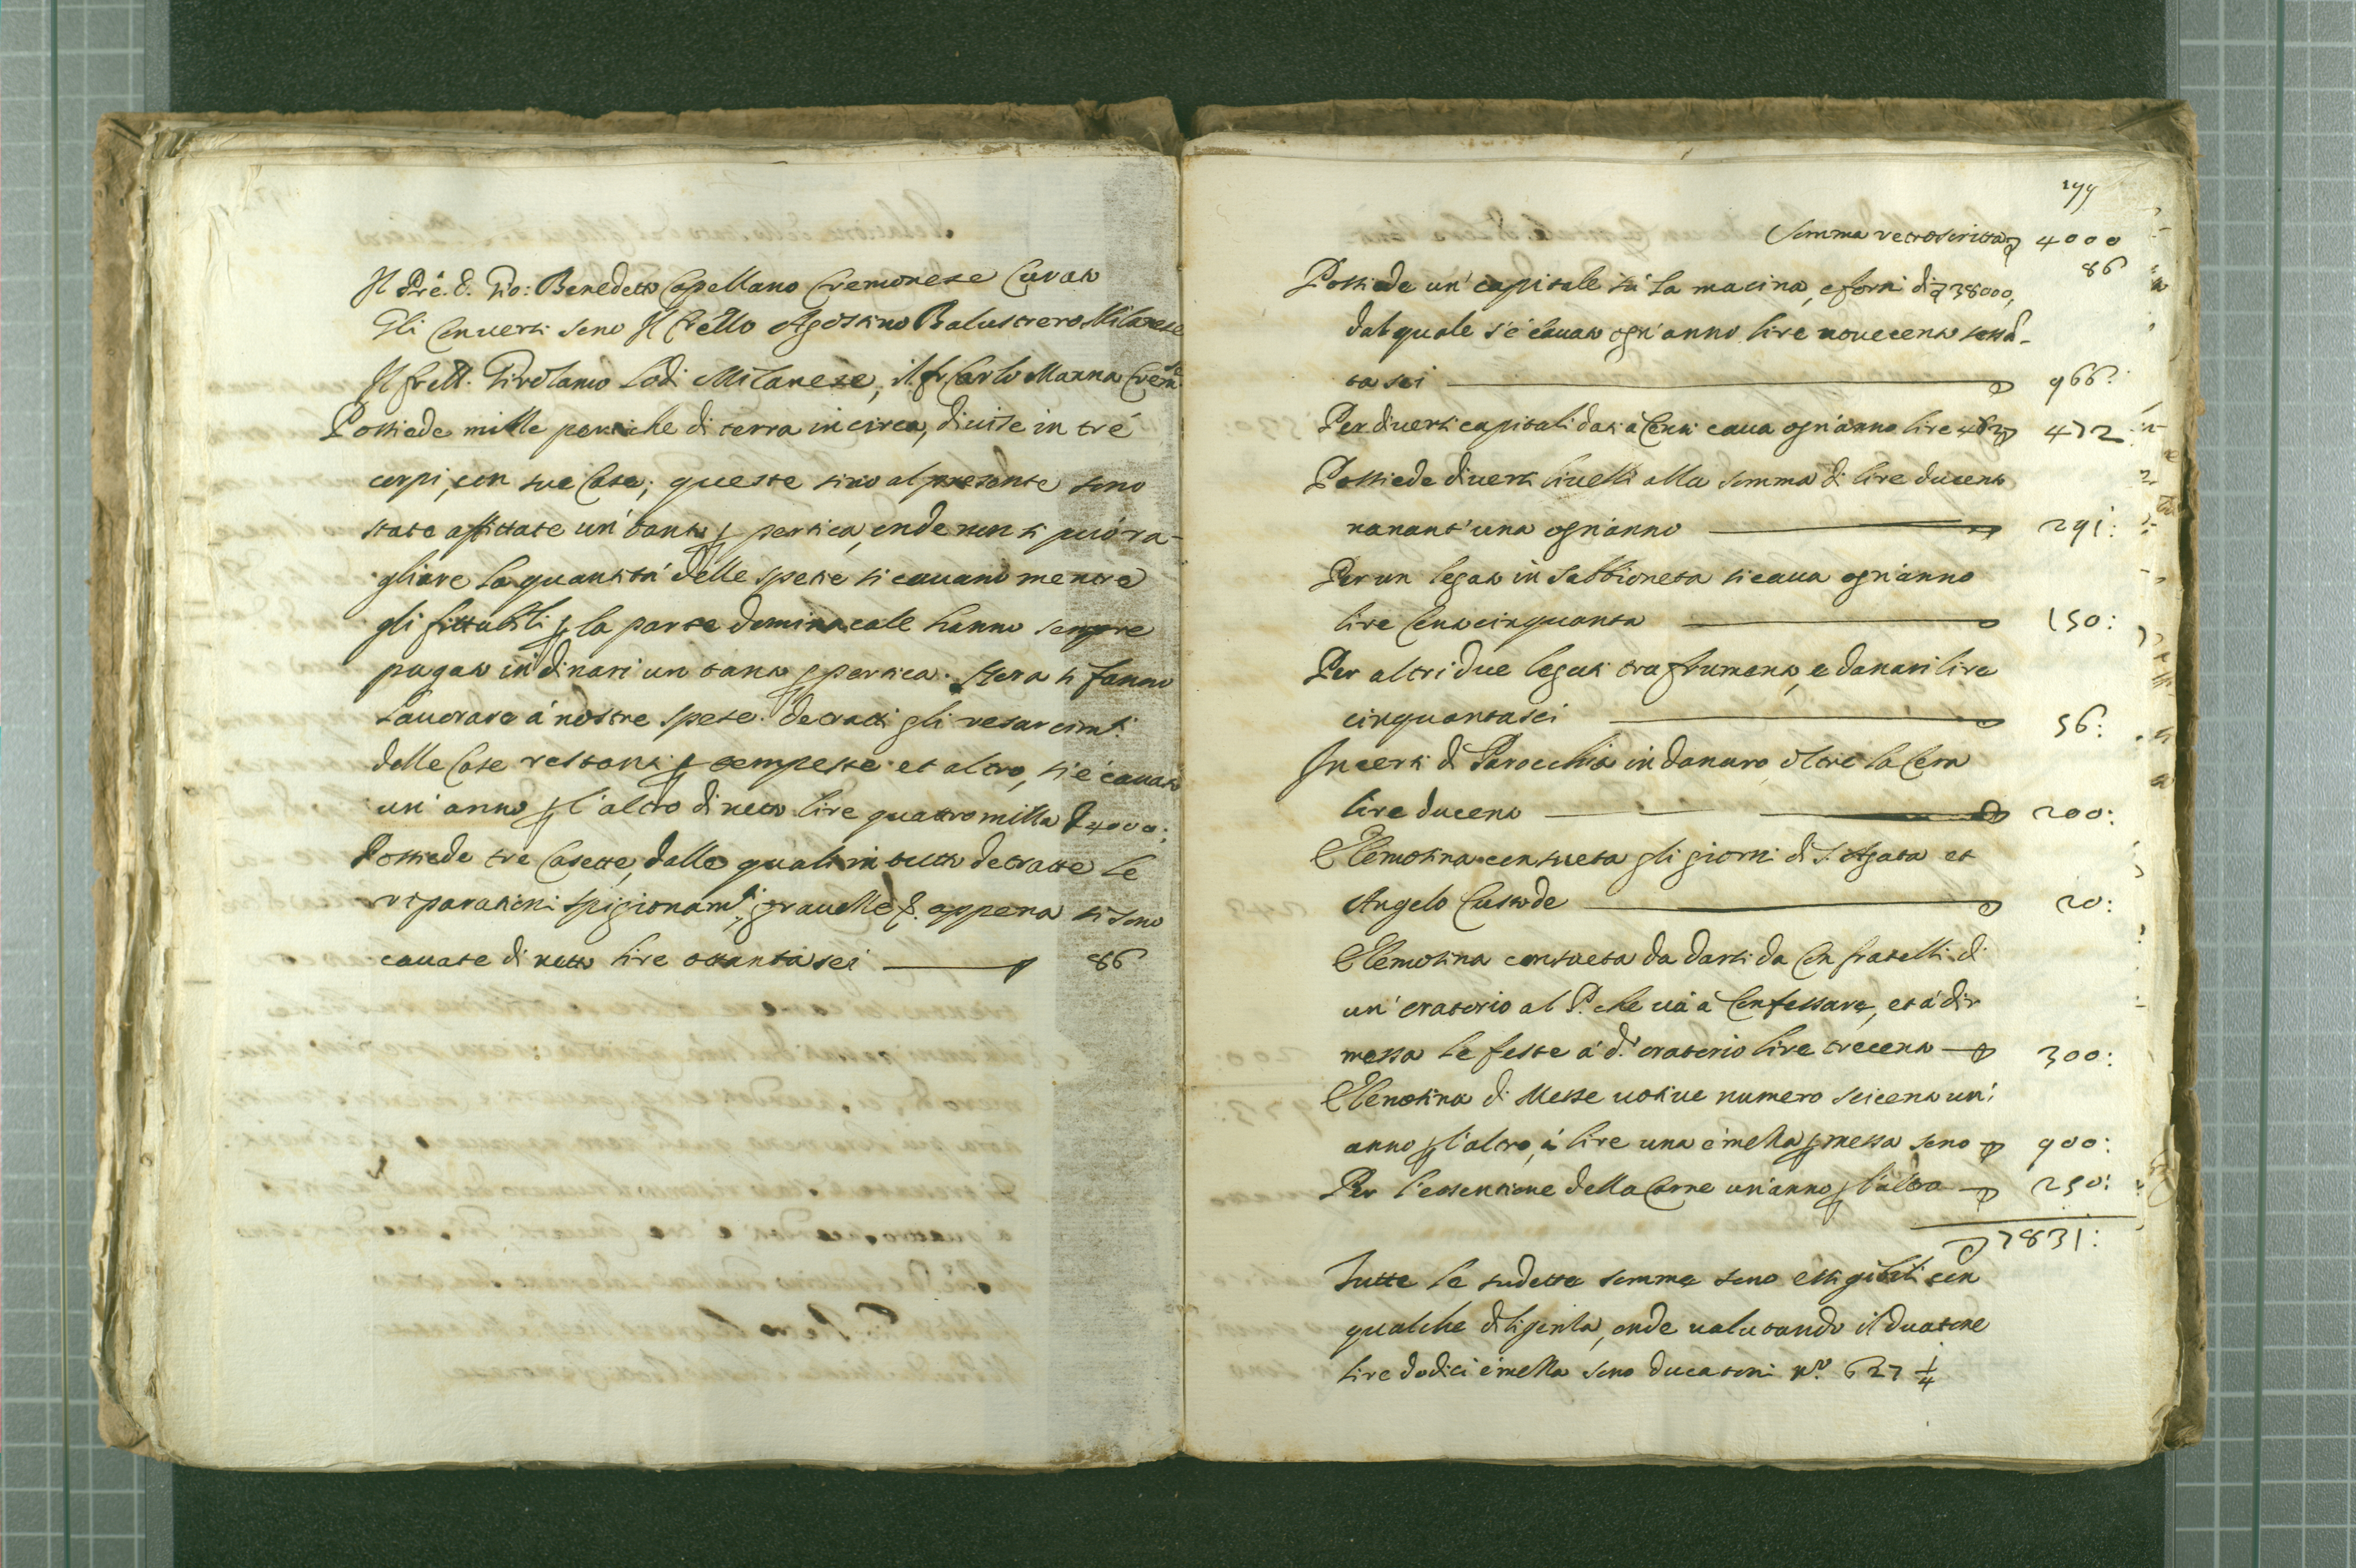 Il Pre. D. Gio: Benedetto Capellano Cremonese Curato
Gli Conversi sono Il frello Agostino Balustrero Milanese
Il frell. Girolamo Lodi Milanese, il fr Carlo Manna Crem.se
Possiede mille pertiche di terra in circa, divise in tré
corpi, con sue Case; queste sino al presente sono
state affittate un' tanto p pertica, onde non si può ra-
gliare la quantità delle spese si cavano mentre
gli fittabili p la parte dominicale hanno sempre
pagato in dinari un tanto p pertica. Hora si fanno
lavorare á nostre spese. detratti gli resarcim.ti
delle Case restauri p tempeste et altro, si é cavato
un' anno p l'altro di netto lire quattro milla 4000:
Possiede tre Casette, dalle quali in tutto detratte le
reparationi spigionam.ti, gravelle &. appena si sono
cavate di netto lire ottantasei 86
199
Somma retroscritta 4000
86
Possiede un' capitale sù la macina, e forni di 38000,
dal quale s'é cavato ogn'anno lire novecento sessá-
ta sei 966:
Per diversi capitali dati á Censi cava ogn'anno lire 4 612
Possiede diversi livelli alla somma di lire ducento
nonant'una ogn'anno 291:
Per un legato in Sabbioneta si cava ogn'anno
lire Cento cinquanta 150:
Per altri due legati tra frumento, e danari lire
cinquantasei 56:
Incerti di Parocchia in danaro, oltre la Cera
lire ducento 200:
Elemosina consueta gli giorni di S. Agata et
Angelo Custode 20:
Elemosina consueta da darsi da Confratelli di
un' oratorio al P. che và á Confessare, et á dir
messa le feste á d.o oratorio lire trecento 300:
Elemosina di Messe votive numero seicento un'
anno p l'altro, á lire una é mezza p messa sono 900:
Per l'essentione della Carne un'anno p l'altro 250:
7831:
Tutte le sudette somme sono essigibili con
qualche diligenza, onde valutando il ducatone
lire dodici é mezza sono ducatoni n.o 627 1/4